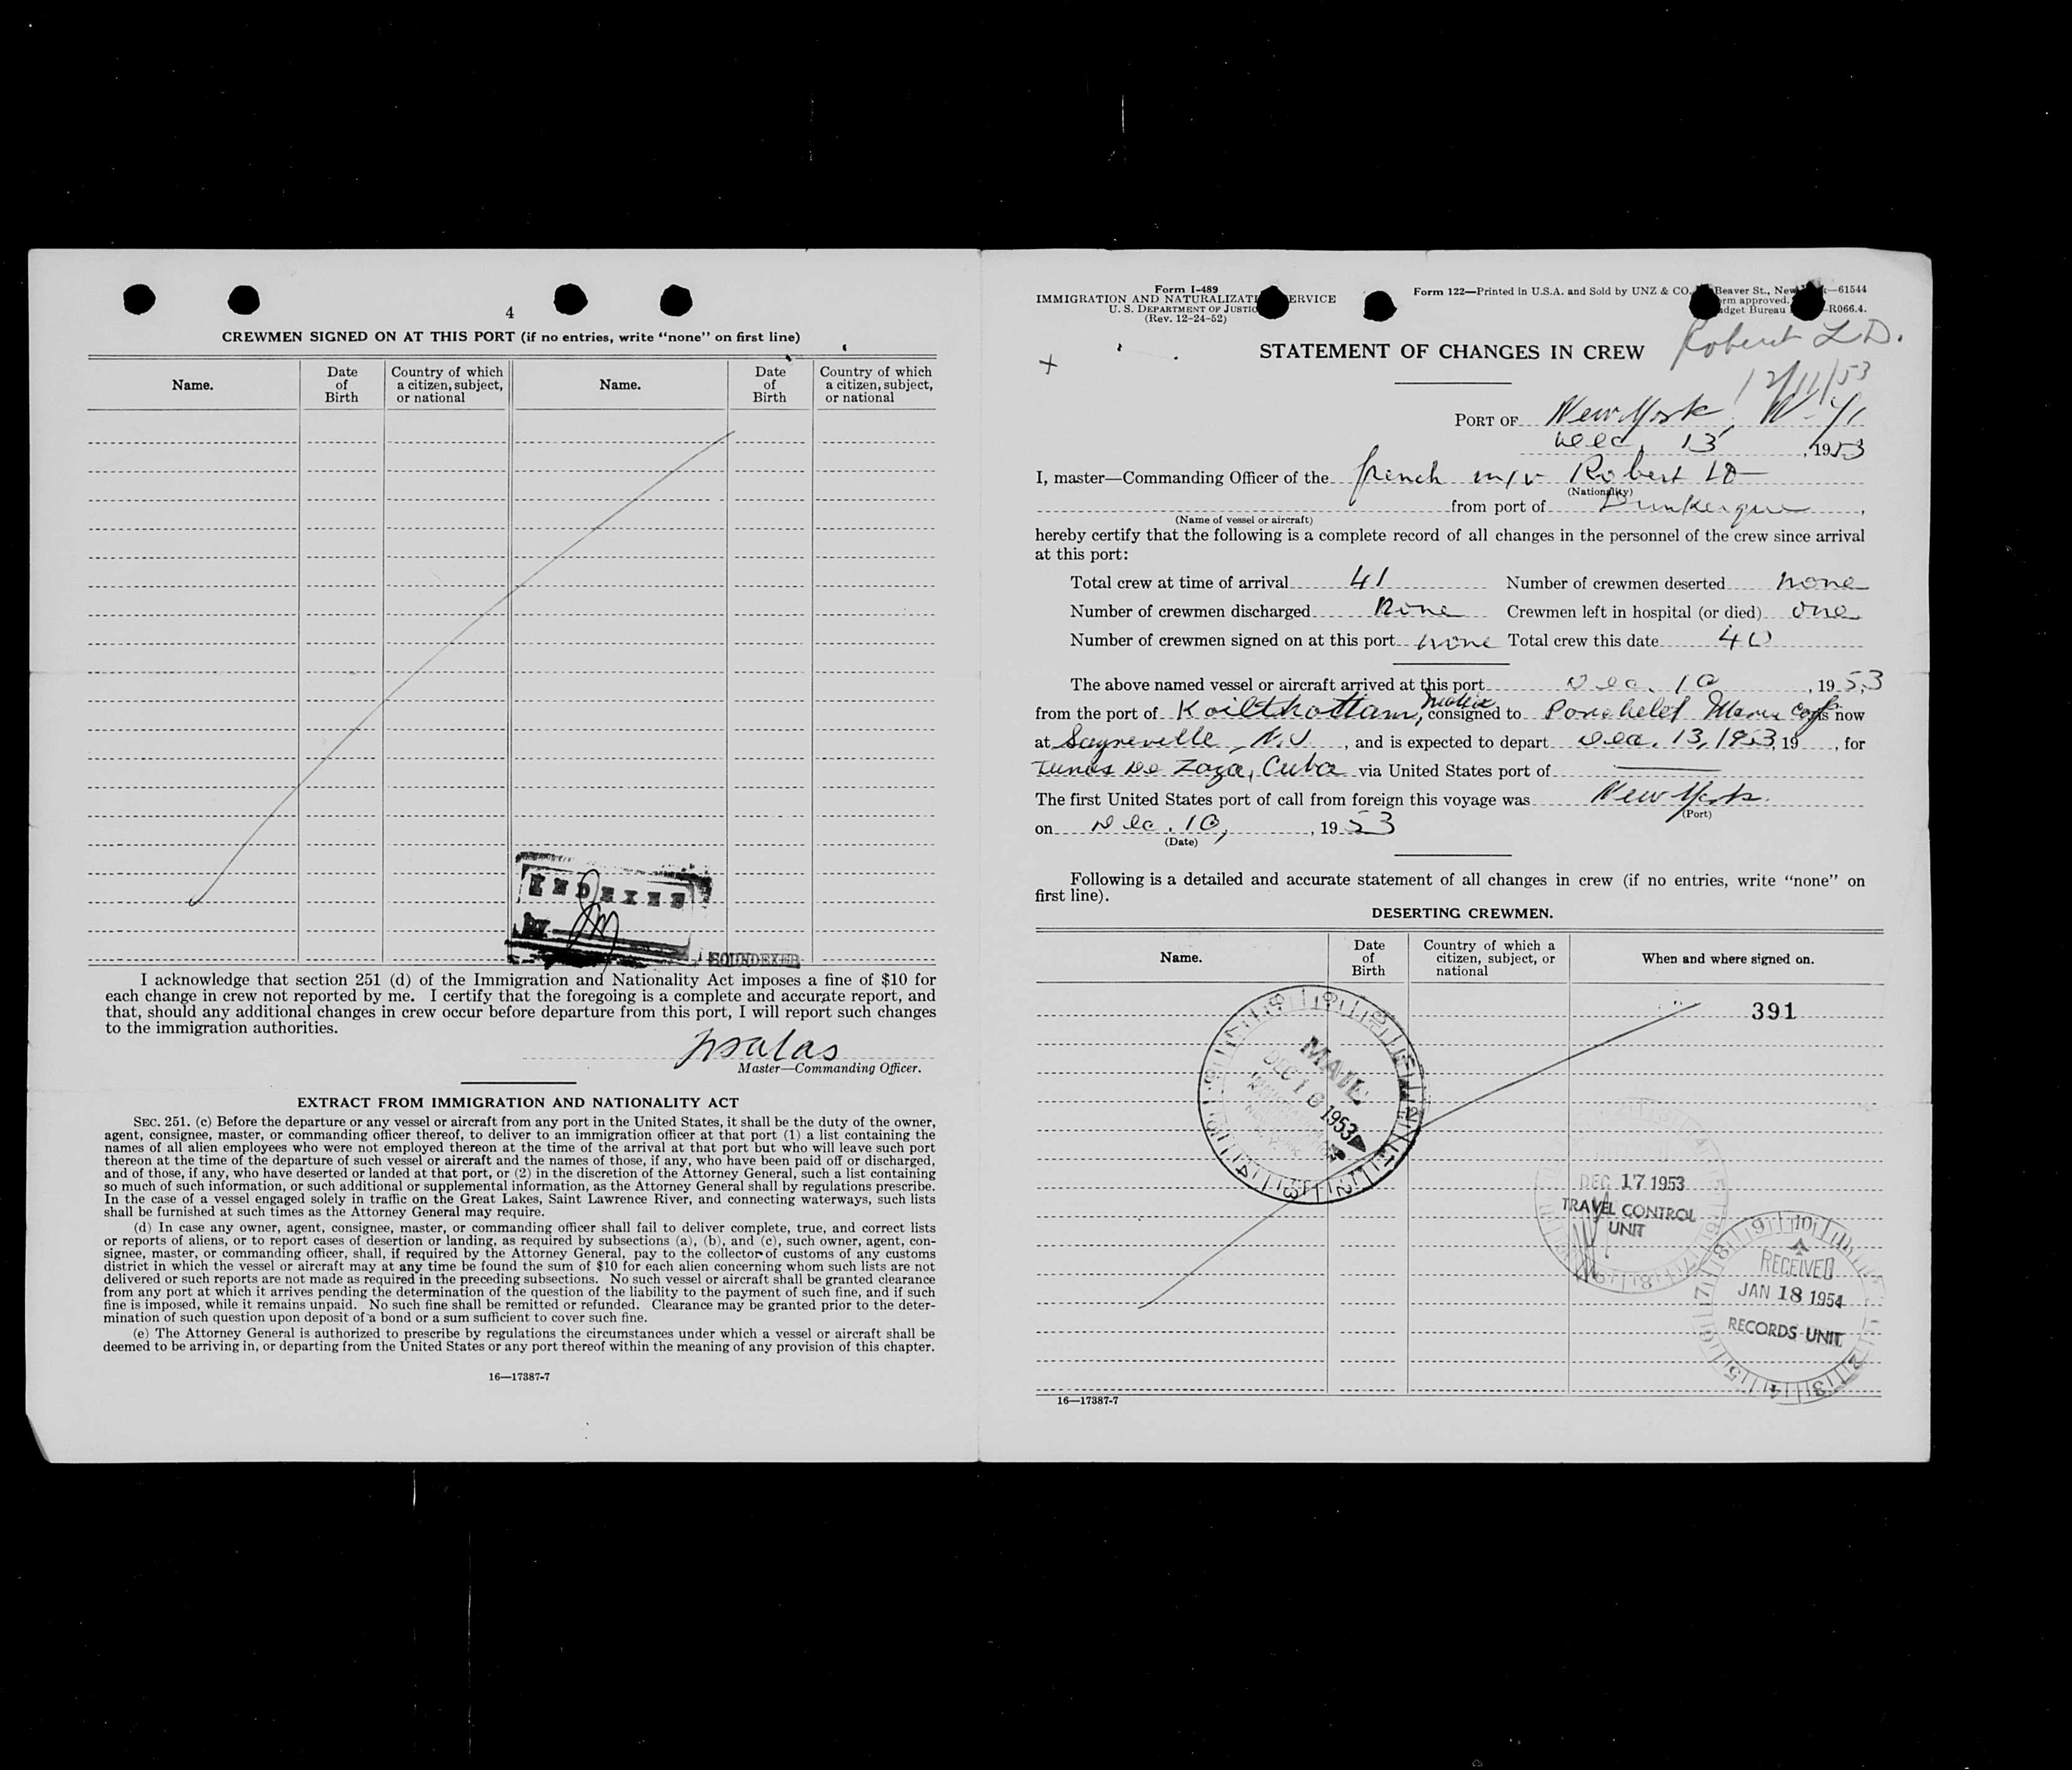 4
CREWMEN SIGNED ON AT THIS PORT (if no entries, write “none” on first line)
Name.
Date of Birth
Country of which a citizen, subject, or national
Name.
Date of Birth
Country of which a citizen, subject, or national
INDEXED
BY
SOUNDEXED
I acknowledge that section 251 (d) of the Immigration and Nationality Act imposes a fine of $10 for
each change in crew not reported by me. I certify that the foregoing is a complete and accurate report, and
that, should any additional changes in crew occur before departure from this port, I will report such changes
to the immigration authorities.
Master—Commanding Officer.
EXTRACT FROM IMMIGRATION AND NATIONALITY ACT
SEC. 251. (c) Before the departure or any vessel or aircraft from any port in the United States, it shall be the duty of the owner,
agent, consignee, master, or commanding officer thereof, to deliver to an immigration officer at that port (1) a list containing the
names of all alien employees who were not employed thereon at the time of the arrival at that port but who will leave such port
thereon at the time of the departure of such vessel or aircraft and the names of those, if any, who have been paid off or discharged,
and of those, if any, who have deserted or landed at that port, or (2) in the discretion of the Attorney General, such a list containing
so much of such information, or such additional or supplemental information, as the Attorney General shall by regulations prescribe.
In the case of a vessel engaged solely in traffic on the Great Lakes, Saint Lawrence River, and connecting waterways, such lists
shall be furnished at such times as the Attorney General may require.
(d) In case any owner, agent, consignee, master, or commanding officer shall fail to deliver complete, true, and correct lists
or reports of aliens, or to report cases of desertion or landing, as required by subsections (a), (b), and (c), such owner, agent, con-
signee, master, or commanding officer, shall, if required by the Attorney General, pay to the collector of customs of any customs
district in which the vessel or aircraft may at any time be found the sum of $10 for each alien concerning whom such lists are not
delivered or such reports are not made as required in the preceding subsections. No such vessel or aircraft shall be granted clearance
from any port at which it arrives pending the determination of the question of the liability to the payment of such fine, and if such
fine is imposed, while it remains unpaid. No such fine shall be remitted or refunded. Clearance may be granted prior to the deter-
mination of such question upon deposit of a bond or a sum sufficient to cover such fine.
(e) The Attorney General is authorized to prescribe by regulations the circumstances under which a vessel or aircraft shall be
deemed to be arriving in, or departing from the United States or any port thereof within the meaning of any provision of this chapter.
16—17387-7
Form I-489
IMMIGRATION AND NATURALIZATI ERVICE
U. S. DEPARTMENT OF JUSTIC
(Rev. 12-24-52)
Form 122—Printed in U.S.A. and Sold by UNZ & CO. Beaver St., New —61544
rm approved.
dget Bureau —R066.4.
Robert L D.
12/11/53
STATEMENT OF CHANGES IN CREW
PORT OF New York, N-Y.
Dec. 13, 1953
I, master—Commanding Officer of the french m/v Robert LD
(Nationality)
from port of Dunkerque,
(Name of vessel or aircraft)
hereby certify that the following is a complete record of all changes in the personnel of the crew since arrival
at this port:
Total crew at time of arrival 41 Number of crewmen deserted none
Number of crewmen discharged None Crewmen left in hospital (or died) one
Number of crewmen signed on at this port none Total crew this date 40
The above named vessel or aircraft arrived at this port Dec. 10, 1953
from the port of Koilthottam, India consigned to now
at Sayreville, N.J., and is expected to depart Dec. 13, 1953, 19 , for
Tunas De Zaza, Cuba via United States port of
The first United States port of call from foreign this voyage was New York.
(Port)
on Dec. 10, , 1953
(Date)
Following is a detailed and accurate statement of all changes in crew (if no entries, write “none” on
first line).
DESERTING CREWMEN.
Name.
Date of Birth
Country of which a citizen, subject, or national
When and where signed on.
391
MAIL
DEC 1 1953
DEC 17 1953
TRAVEL CONTROL
UNIT
RECEIVED
JAN 18 1954
RECORDS UNIT
16—17387-7